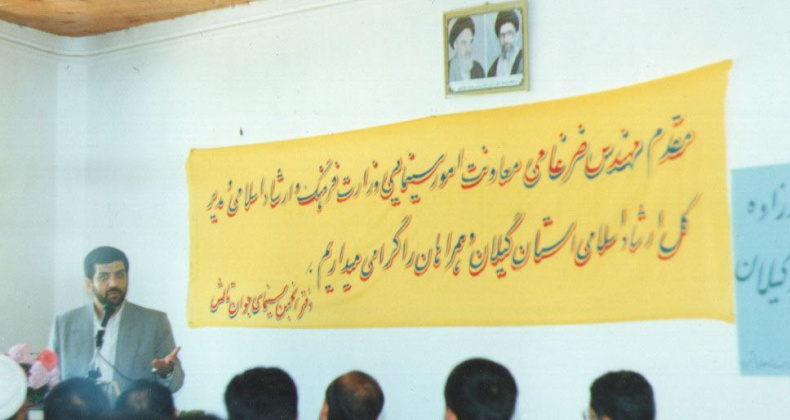 مقدم مهندس ضرغامی معاونت امور سینمایی وزارت فرهنگ و ارشاد اسلامی و مدیر
کل ارشاد اسلامی استان گیلان و همراهان را گرامی میداریم.
دفتر انجمن سینمای جوان تالش
زاده
گیلان